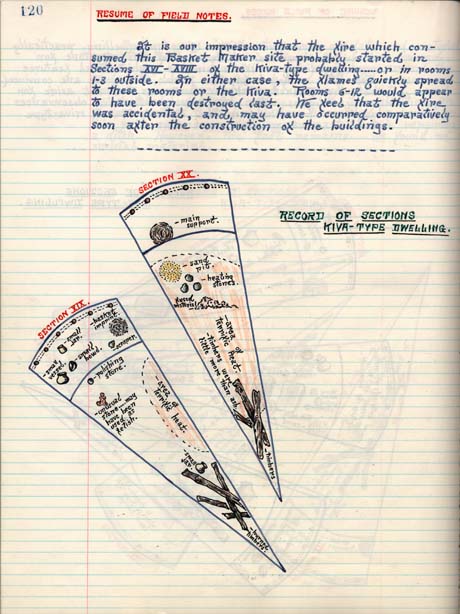 120
RESUME OF FIELD NOTES.
It is our impression that the fire which con-
sumed this Basket Maker site probably started in
Sections XVI-XVIII of the Kiva-type dwelling.....or in rooms
1-3 outside. In either case, the flames quickly spread
to these rooms or the Kiva. Rooms 6-12 would appear
to have been destroyed last. We feel that the fire
was accidental, and, may have occurred comparatively
soon after the construction of the buildings.
SECTION XX.
-main
support.
RECORD OF SECTIONS
KIVA-TYPE DWELLING.
-sand
pit.
-heating
stones.
-area of
terrific heat.
-timbers were
little more than ash.
-timbers
SECTION XIX.
-small
jar.
-basket
imprint.
-small
vessel.
-small
bowl.
-scraper.
-polishing
stone.
-unusual
stone may
have been
used as
fetish.
-area of
terrific heat.
-small
jar.
-burned
timbers.